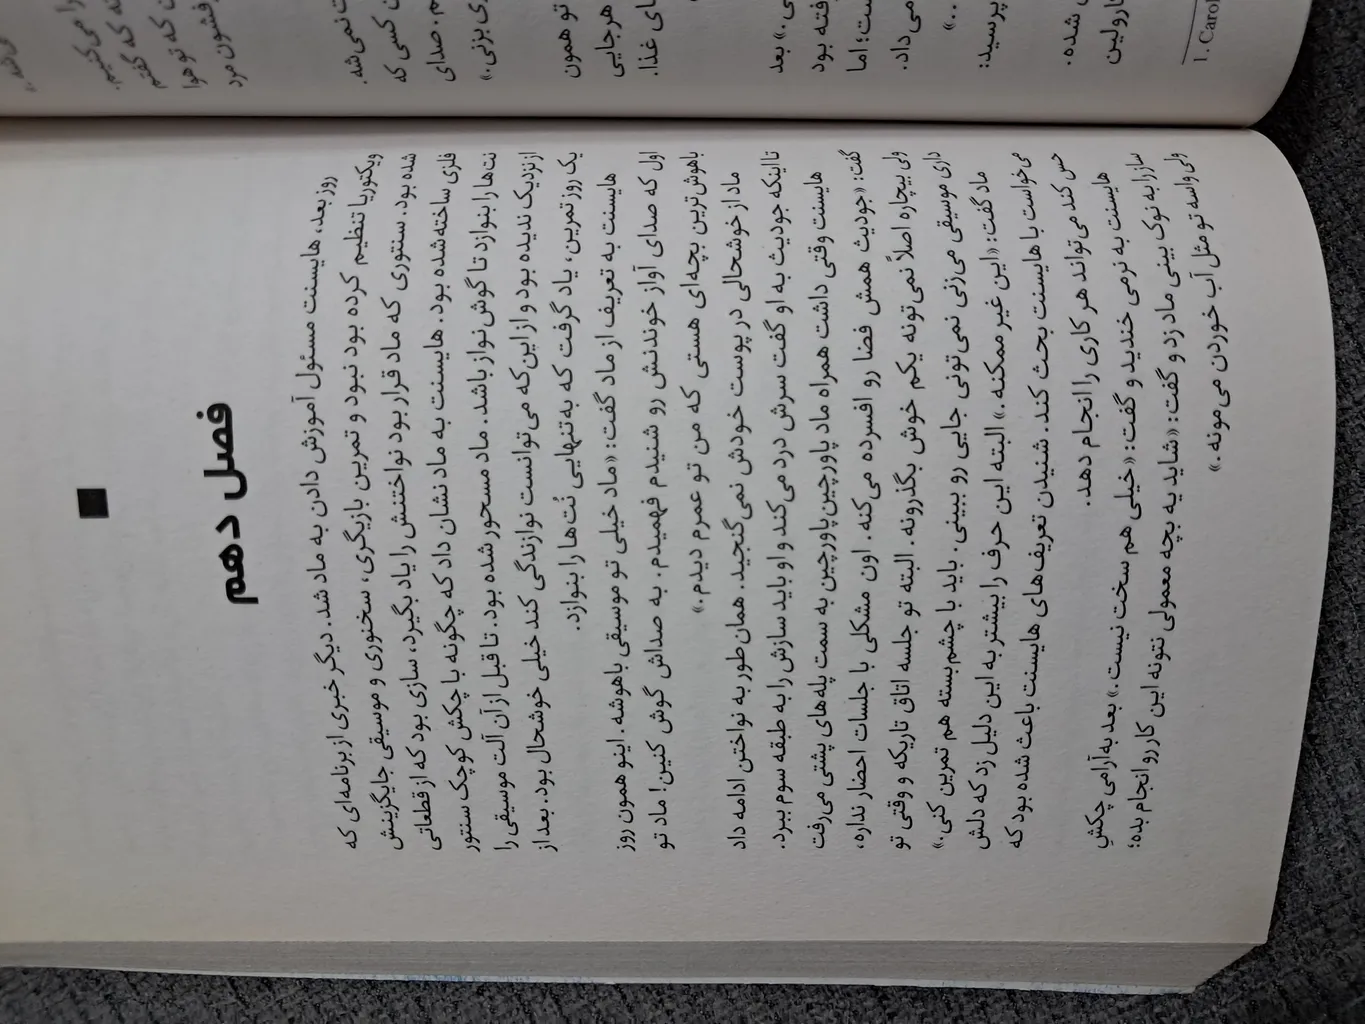 را می‌کنیم.
نه که گفتم
ن که تو هوا
رفشون مرد
ت نمی‌شه.
م. صدای
ن کسی که
ی بزنی.»
تو همون
هرجایی
ای غذا.
ی.» بعد
فته بود
ست؛ اما
می‌داد.
..»
پرسید:
شده.
ارولین
1. Carol
فصل دهم
روز بعد، هایسنت مسئول آموزش دادن به ماد شد. دیگر خبری از برنامه‌ای که
ویکتوریا تنظیم کرده بود نبود و تمرین بازیگری، سخنوری و موسیقی جایگزینش
شده بود. سنتوری که ماد قرار بود نواختنش را یاد بگیرد، سازی بود که از قطعاتی
فلزی ساخته شده بود. هایسنت به ماد نشان داد که چگونه با چکش کوچک سنتور
نت‌ها را بنوازد تا گوش‌نواز باشد. ماد مسحور شده بود. تا قبل از آن آلت موسیقی را
از نزدیک ندیده بود و از این‌که می‌توانست نوازندگی کند خیلی خوشحال بود. بعد از
یک روز تمرین، یاد گرفت که به‌تنهایی نُت‌ها را بنوازد.
هایسنت به تعریف از ماد گفت: «ماد خیلی تو موسیقی باهوشه. اینو همون روز
اول که صدای آواز خوندنش رو شنیدم فهمیدم. به صداش گوش کنین! ماد تو
باهوش‌ترین بچه‌ای هستی که من تو عمرم دیدم.»
ماد از خوشحالی در پوست خودش نمی‌گنجید. همان‌طور به نواختن ادامه داد
تا اینکه جودیث به او گفت سرش درد می‌کند و او باید سازش را به طبقه سوم ببرد.
هایسنت وقتی داشت همراه ماد پاورچین‌پاورچین به سمت پله‌های پشتی می‌رفت
گفت: «جودیث همش فضا رو افسرده می‌کنه. اون مشکلی با جلسات احضار نداره،
ولی بیچاره اصلاً نمی‌تونه یکم خوش بگذرونه. البته تو جلسه اتاق تاریکه و وقتی تو
داری موسیقی می‌زنی نمی‌تونی جایی رو ببینی. باید با چشم‌بسته هم تمرین کنی.»
ماد گفت: «این غیر ممکنه.» البته این حرف را بیشتر به این دلیل زد که دلش
می‌خواست با هایسنت بحث کند. شنیدن تعریف‌های هایسنت باعث شده بود که
حس کند می‌تواند هر کاری را انجام دهد.
هایسنت به نرمی خندید و گفت: «خیلی هم سخت نیست.» بعد به‌آرامی چکشِ
ساز را به نوک بینی ماد زد و گفت: «شاید یه بچه معمولی نتونه این کار رو انجام بده؛
ولی واسه تو مثل آب خوردن می‌مونه.»